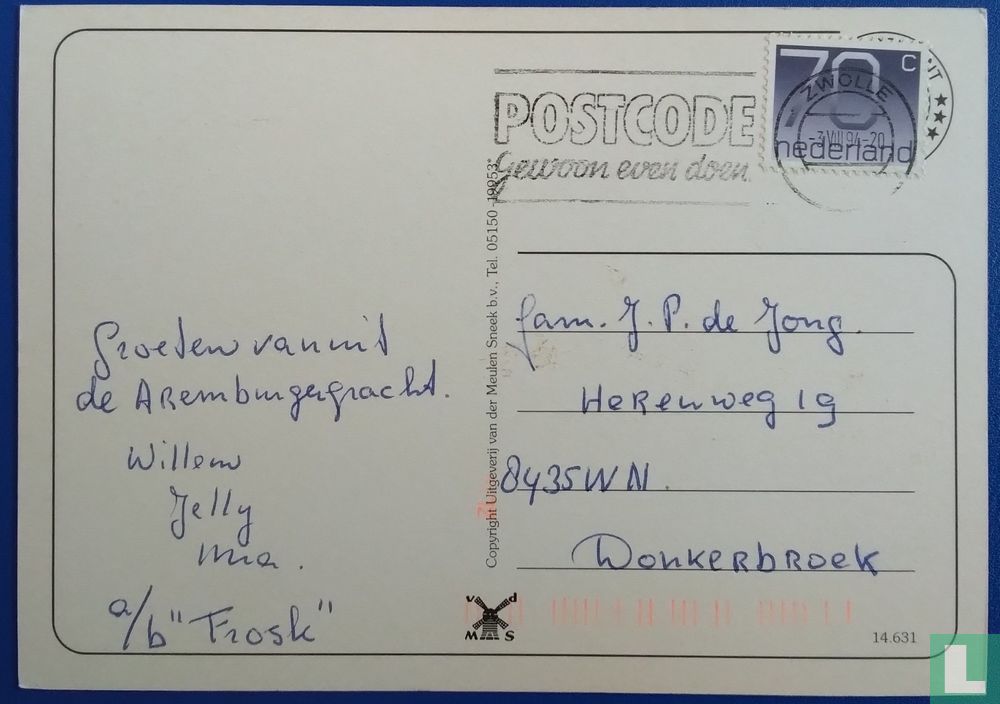 Groeten vanuit
de Aremburgergracht.
Willem
Jelly
Mia.
a/b "Frosk"
Copyright Uitgeverij van der Meulen Sneek b.v., Tel. 05150 -19953*
v d
M S
POSTCODE
Gewoon even doen.
70 c
nederland
ZWOLLE
-3.VIII.94-20
fam. J. P. de Jong.
Herenweg 19
8435WN.
Donkerbroek
14.631
L